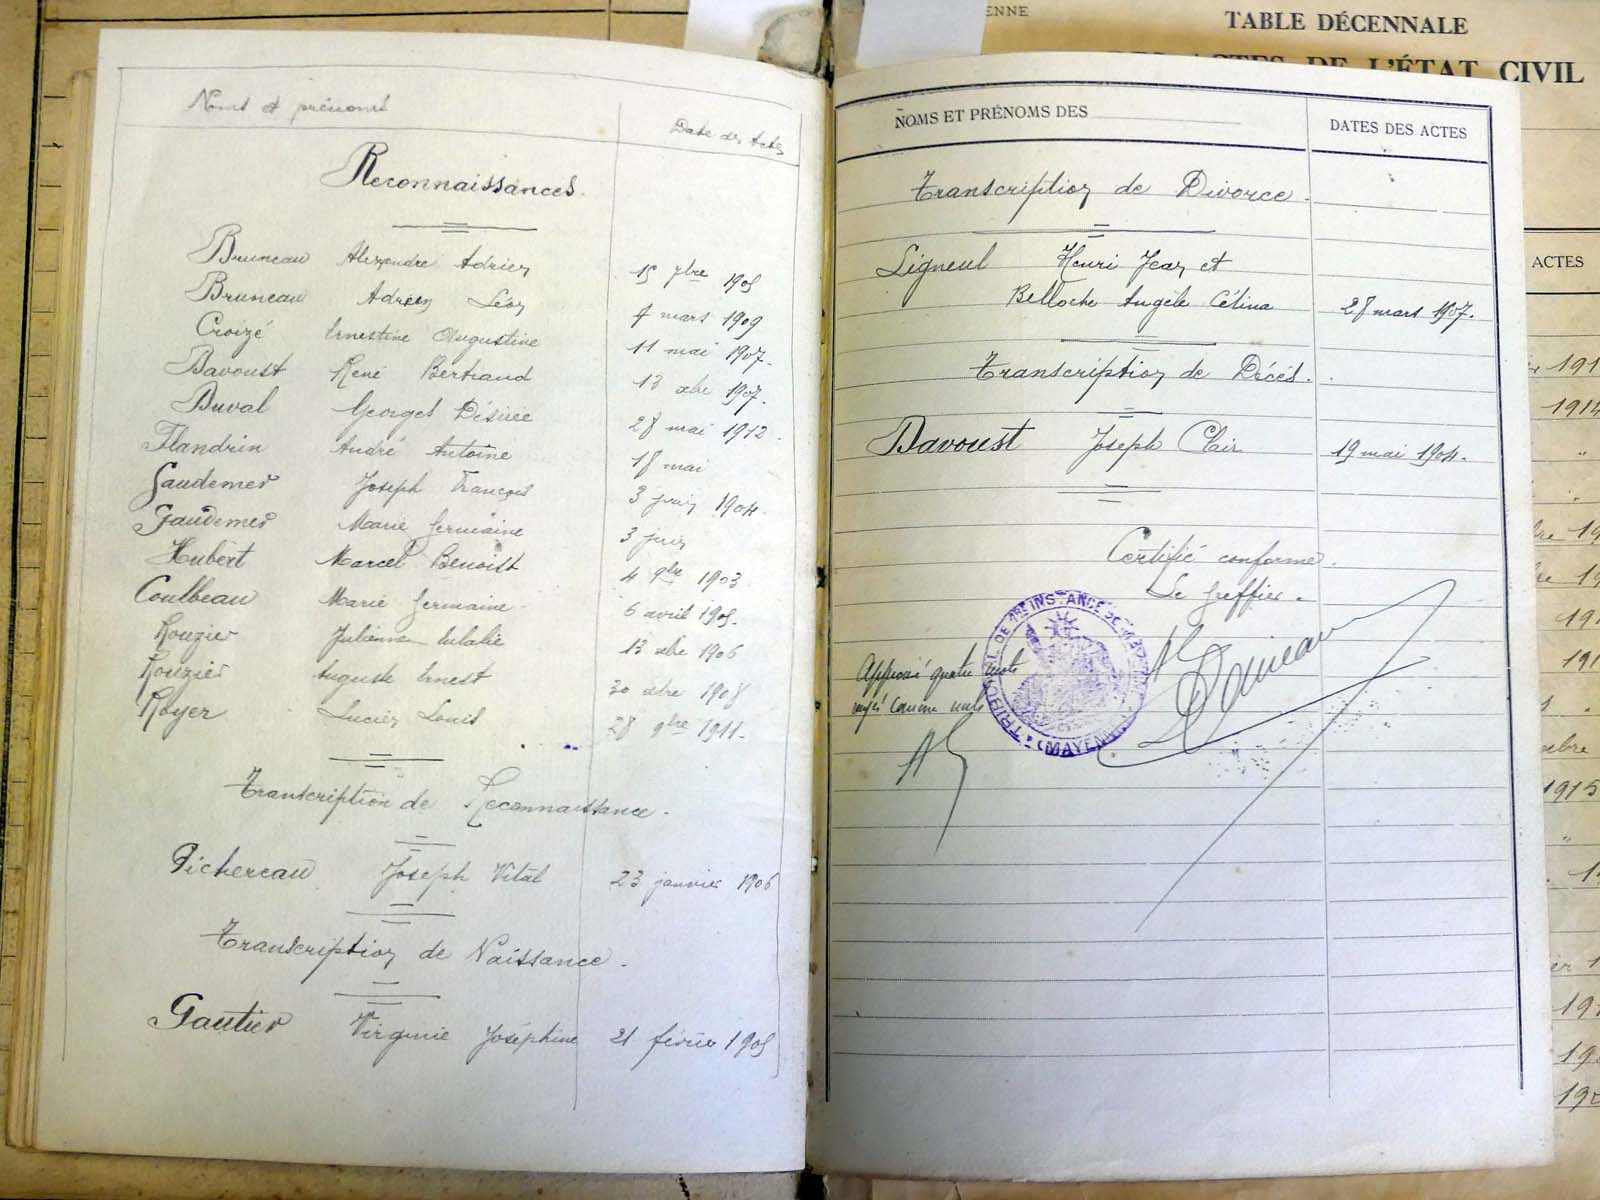 Noms et prénoms
Date des actes
Reconnaissances.
Bruneau Alexandre Adrien 15 7bre 1905
Bruneau Adrien Léon 4 mars 1909
Croizé Ernestine Augustine 11 mai 1907.
Davoust René Bertrand 13 xbre 1907.
Duval Georges Désirée 28 mai 1912.
Flandrin André Antoine 18 mai
Gaudemer Joseph François 3 juin 1904.
Gaudemer Marie Germaine 3 juin
Hubert Marcel Benoist 4 9bre 1903
Coulbeau Marie Germaine 6 avril 1905.
Rouzier Julienne Eulalie 13 xbre 1906
Rouzier Auguste Ernest 30 xbre 1908
Royer Lucien Louis 28 9bre 1911.
Transcription de Reconnaissance.
Pichereau Joseph Vital 23 janvier 1906
Transcription de Naissance.
Gautier Virginie Joséphine 21 février 1905
ENNE
TABLE DÉCENNALE
ACTES DE L'ÉTAT CIVIL
NOMS ET PRÉNOMS DES
DATES DES ACTES
Transcription de Divorce.
Ligneul Henri Jean et
Belloche Angèle Célina 28 mars 1907.
Transcription de Décès.
Davoust Joseph Clair 19 mai 1904.
Certifié conforme.
Le Greffier.
TRIBUNAL DE 1RE INSTANCE DE
(MAYENNE)
Approuvé quatre mots
rayés comme nuls
ACTES
1914
1915